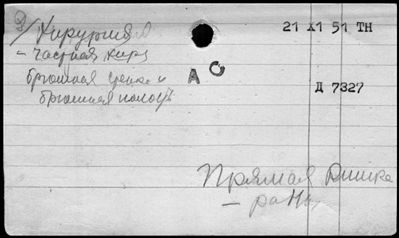 2/ Хирургия
21 XI 51 ТН
- частная хир
брюшная стенка и
А С
Д 7327
брюшная полость
Прямая кишка
- рана